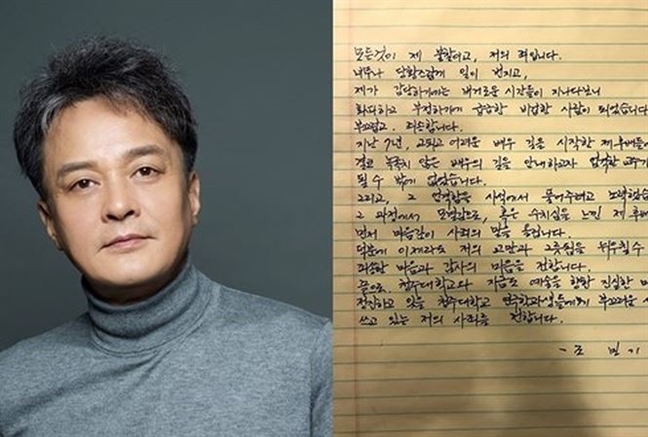 모든것이 제 불찰이고, 저의 죄입니다.
너무나 당황스럽게 일이 번지고,
제가 감당하기에는 버거운 시간들이 지나다보니
회피하고 부정하기에 급급한 비겁한 사람이 되었습니다
부끄럽고. 죄송합니다.
지난 7년, 고되고 어려운 배우 길을 시작한 제 후배들에
결코 녹록치 않은 배우의 길을 안내하고자 엄격한 교수가
될 수 밖에 없었습니다.
그리고, 그 엄격함을 사석에서 풀어주려고 노력했습
그 과정에서 모멸감으로, 혹은 수치심을 느낀 제 후배
먼저 마음깊이 사죄의 말을 올립니다.
덕분에 이제라도 저의 교만과 그릇됨을 뉘우칠 수
죄송한 마음과 감사의 마음을 전합니다.
끝으로 청주대학교와 지금도 예술을 향한 진실한 마
정진하고 있을 청주대학교 연극학과 학생들에게 부끄러움
쓰고 있는 저의 사죄를 전합니다.
- 조 민 기